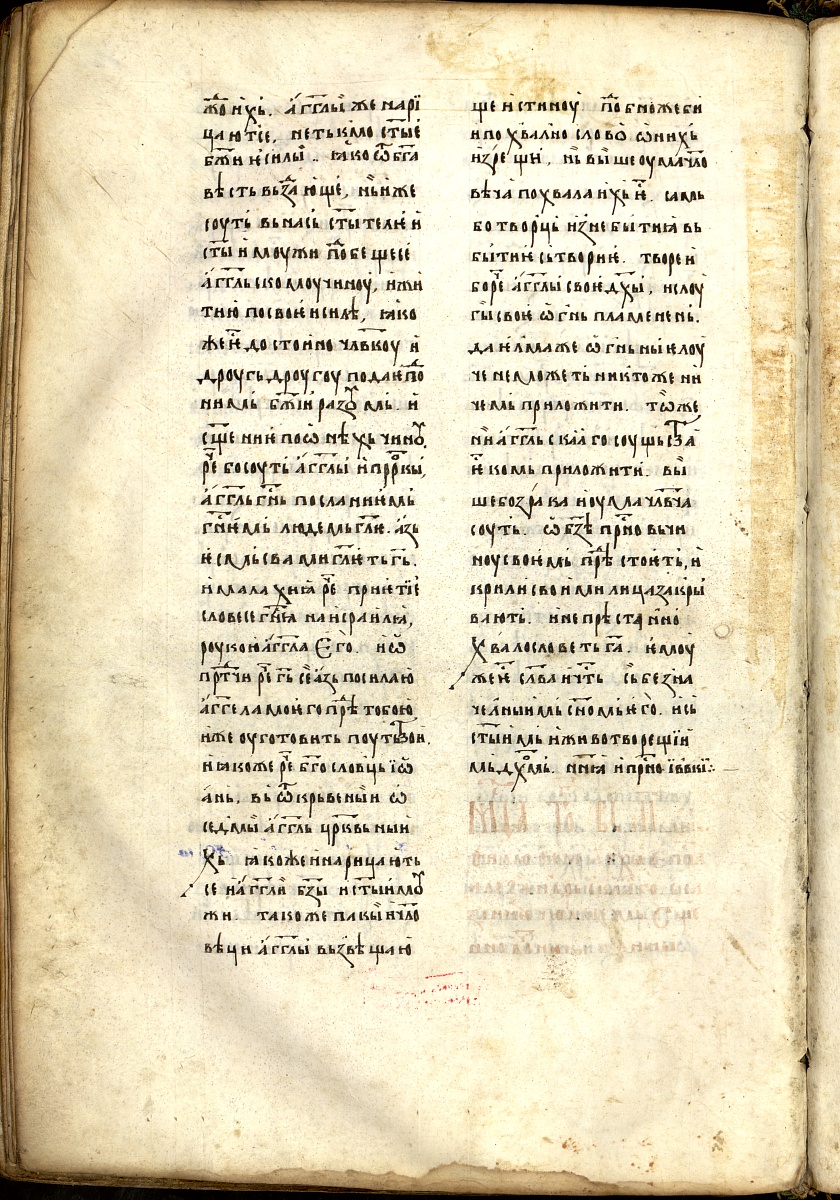 жо ихь. аггглы же нарі
цают се, нетькмо стые
бжїи е силы .. ꙗко ѿ бга
вѣсть вьзающе, нь и же
соуть вь нась стытелїе и
сты и моужи по бещесе
аггльскомоу чиноу, и жи
тию по своеи силѣ, ꙗко
же е достоино чл҃вкоу и
дроугь дроугоу подае по
нимь бжїи разоумь. и
сщ҃ение по ѡнѣхь чиноу.
ре бо соуть агглы и прркы,
аггль гнь посланиемь
гнѥмь людемь гле. азь
есмь с вами глеть гь.
и малахиꙗ ре приетїе
словесе гнꙗ на исраилꙗ,
роукою аггла его. и ѡ
прт҃чи ре гь се азь посилаю
аггела моего прѣ тобою
иже оуготовить поуть твои.
и ꙗкоже ре бгословць їѡ
ань. вь ѿкрьвении ѡ
седмы аггль црквьныи
хь ꙗкоже и нарицають
се и аггли бзы и стыи моу
жи. такоже пакы и чло
вѣци агглы вьзвѣщаю
ще истиноу. побно же би
и похвално слово ѡ нихь
изрещи, нь выше оума чло
вѣча похвала ихь е. самь
бо творць из небытиꙗ вь
бытие сьтворие. твореи
бо ре агглы свое дхы, и слоу
гы свое ѡгнь пламенень.
да елма же ѡгньны е лоу
че не может никтоже ни
чемь приложити. тоже
ни аггльскааго соущьства
е комь приложити. вы
ше бо зрака и оума чл҃вча
соуть. ѡ бзѣ прно вь чи
ноу своемь прѣстоеть, и
крили своими лица закры
вають. и непрѣстанно
хвалословеть га. емоу
же е слава и чть сь безна
челныимь сномь его. и сь
стыимь и животворещїи
мь дхомь. ннꙗ и прно ї в вкї:.